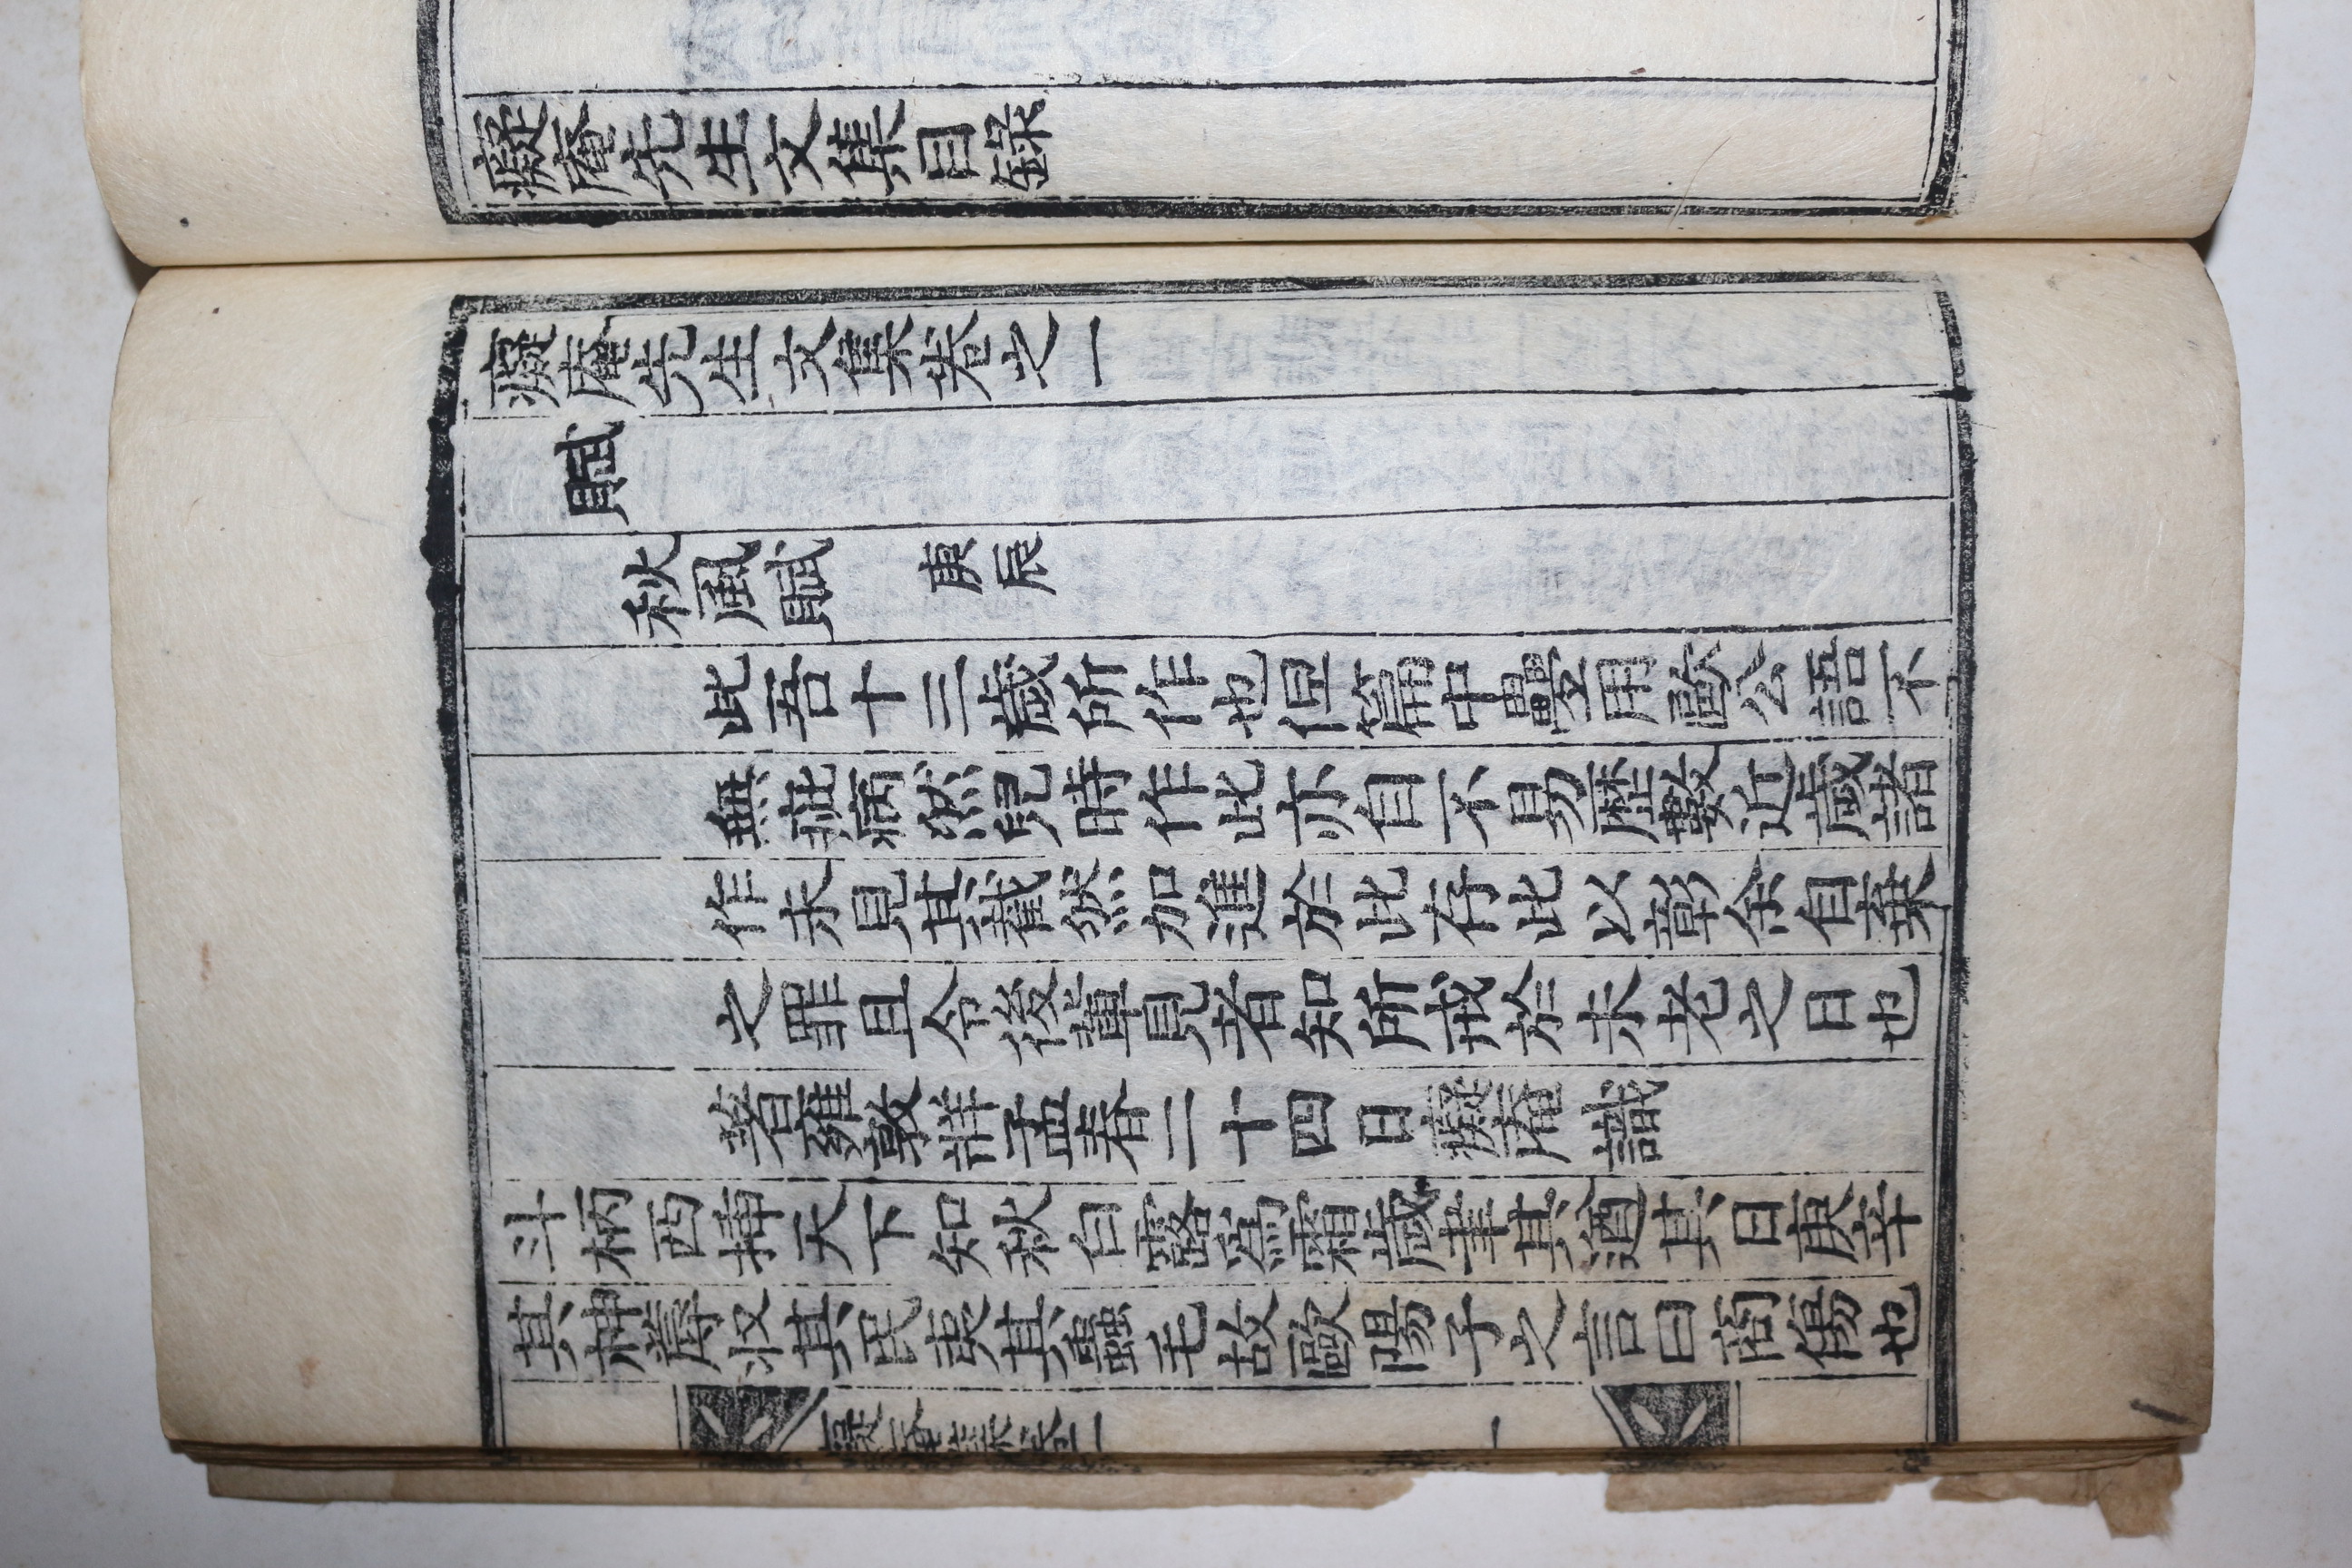 癡庵先生文集目錄
癡庵先生文集卷之一
賦
秋風賦 庚辰
此吾十三歲所作也但篇中疊用歐公語不
無疵病然兒時作此亦自不易歷數近歲諸
作未見其截然加進於此存此以彰余自棄
之罪且令後輩見者知所戒於未老之日也
著雍敦牂孟春二十四日癡庵識
斗柄西天下知秋白露爲霜歲聿其遒其日庚辛
其神蓐收其民夷其蟲毛故歐陽子之言曰商傷也